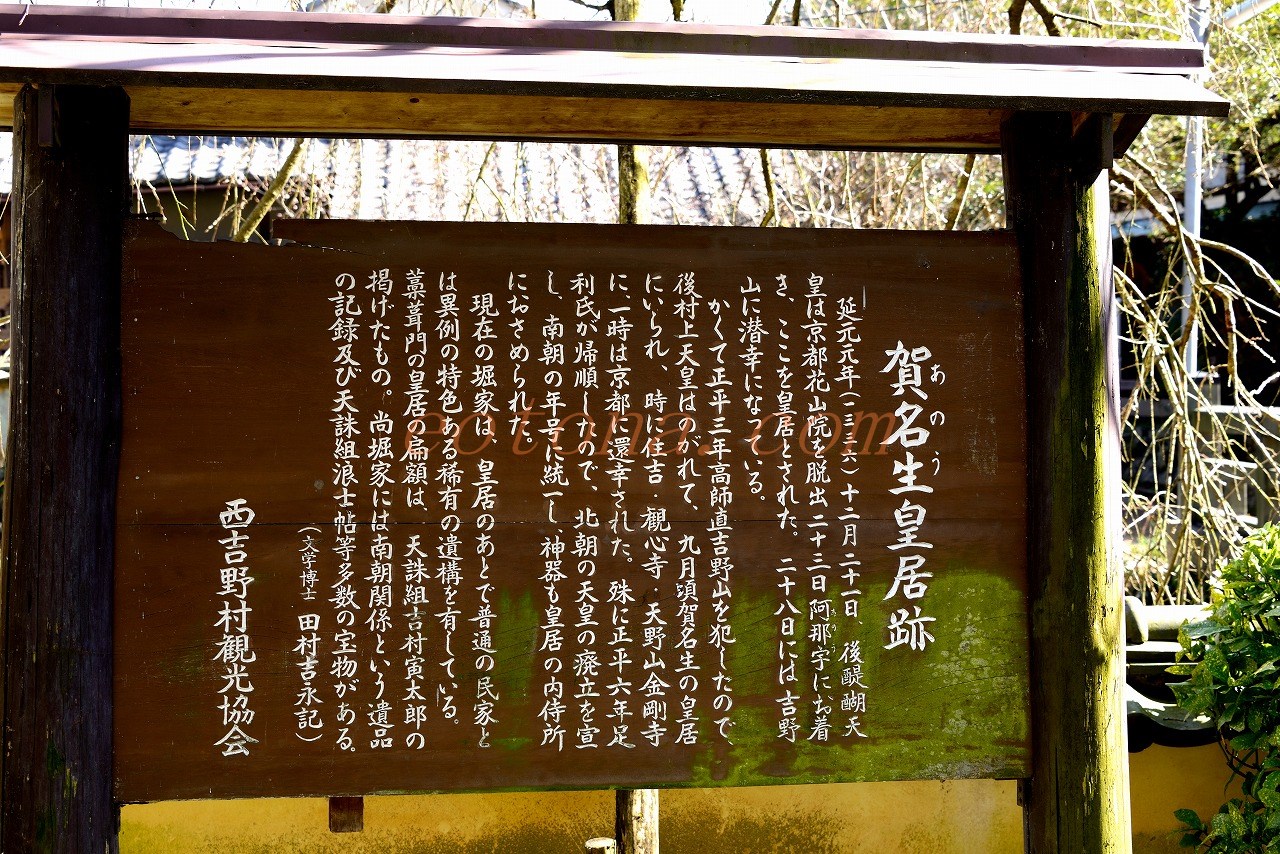 賀名生皇居跡
あのう
延元元年(一三三六)十二月二十一日、後醍醐天
皇は京都花山院を脱出二十三日阿那宇にお着
き、ここを皇居とされた。二十八日には吉野
山に潜幸になっている。
かくて正平三年高師直吉野山を犯したので、
後村上天皇はのがれて、九月頃賀名生の皇居
にいられ、時に住吉・観心寺・天野山金剛寺
に、一時は京都に還幸された。殊に正平六年足
利氏が帰順したので、北朝の天皇の廃立を宣
し、南朝の年号に統一し、神器も皇居の内侍所
におさめられた。
現在の堀家は、皇居のあとで普通の民家と
は異例の特色ある稀有の遺構を有している。
藁葺門の皇居の扁額は、天誅組吉村寅太郎の
掲げたもの。尚堀家には南朝関係という遺品
の記録及び天誅組浪士帖等多数の宝物がある。
(文学博士 田村吉永記)
西吉野村観光協会
eotona.com